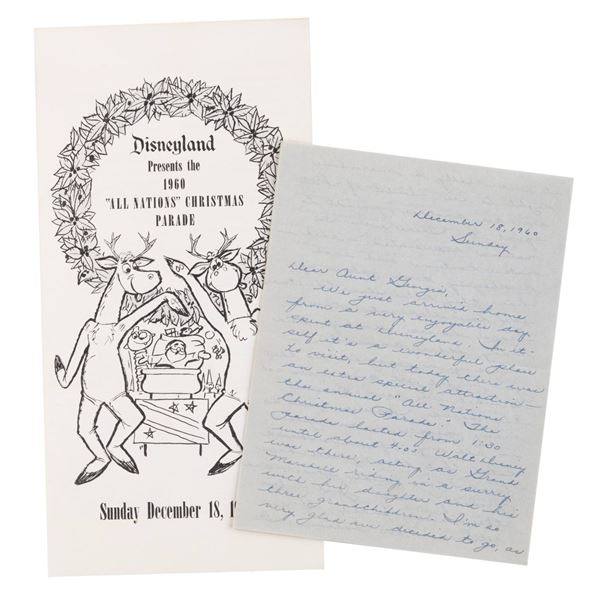 Disneyland
Presents the
1960
"ALL NATIONS" CHRISTMAS
PARADE
Sunday December 18, 1
December 18, 1960
Sunday
Dear Aunt Georgia,
We just arrived home
from a very enjoyable day
spent at Disneyland. In it-
self it's a wonderful place
to visit, but today there was
an extra special attraction—
the annual "All Nations
Christmas Parade." The
parade lasted from 1:30
until about 4:00. Walt Disney
was there, acting as Grand
Marshall riding in a surrey
with his daughter and his
three grandchildren. I'm so
very glad we decided to go, as